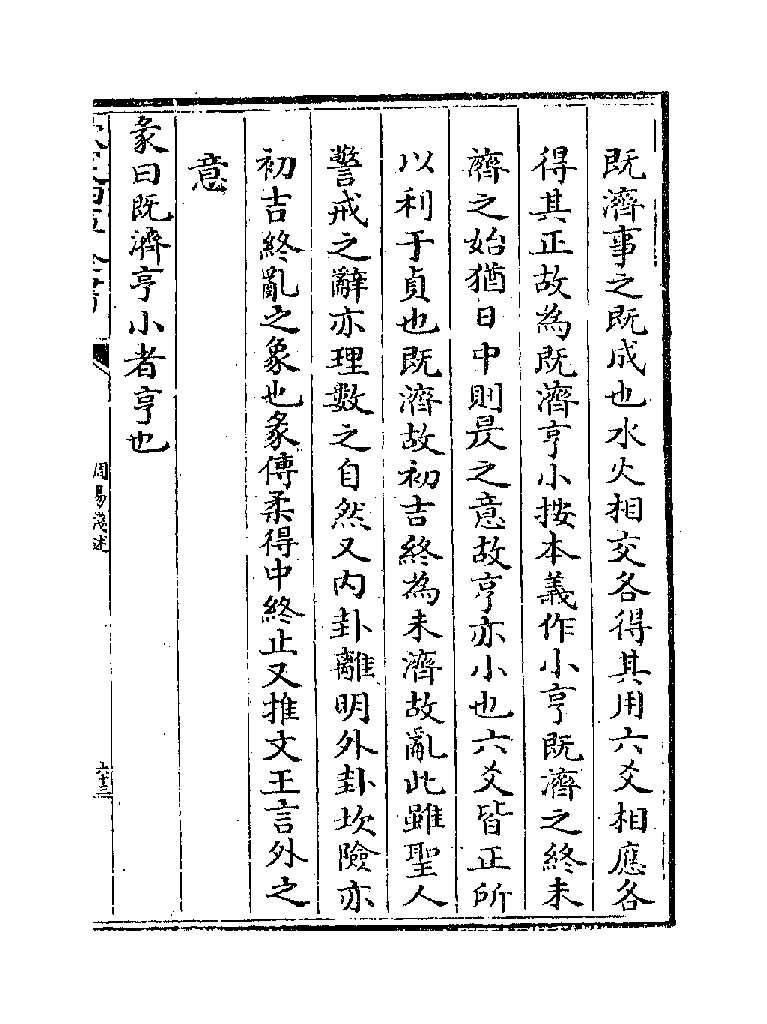 既濟事之既成也水火相交各得其用六爻相應各
得其正故為既濟亨小按本義作小亨既濟之終未
濟之始猶日中則昃之意故亨亦小也六爻皆正所
以利于貞也既濟故初吉終為未濟故亂此雖聖人
警戒之辭亦理數之自然又内卦離明外卦坎險亦
初吉終亂之象也彖傳柔得中終止又推文王言外之
意
彖曰既濟亨小者亨也
周易淺述